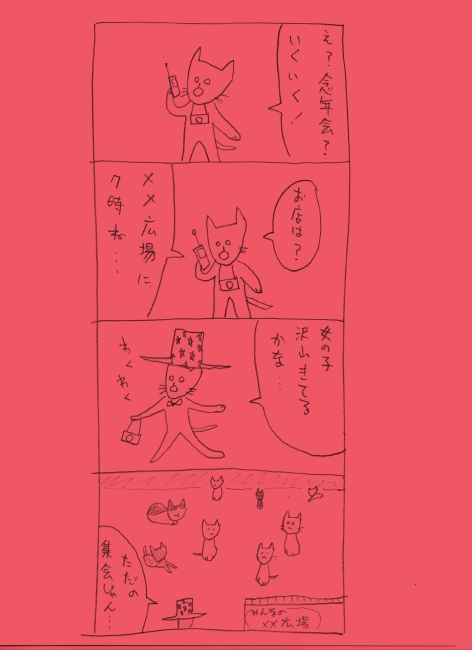 え?念年会?
いくいく!
お店は?
××広場に
7時ね…
女の子
沢山きてる
かな…
わくわく
ただの
集会じゃん…
みんなの
××広場